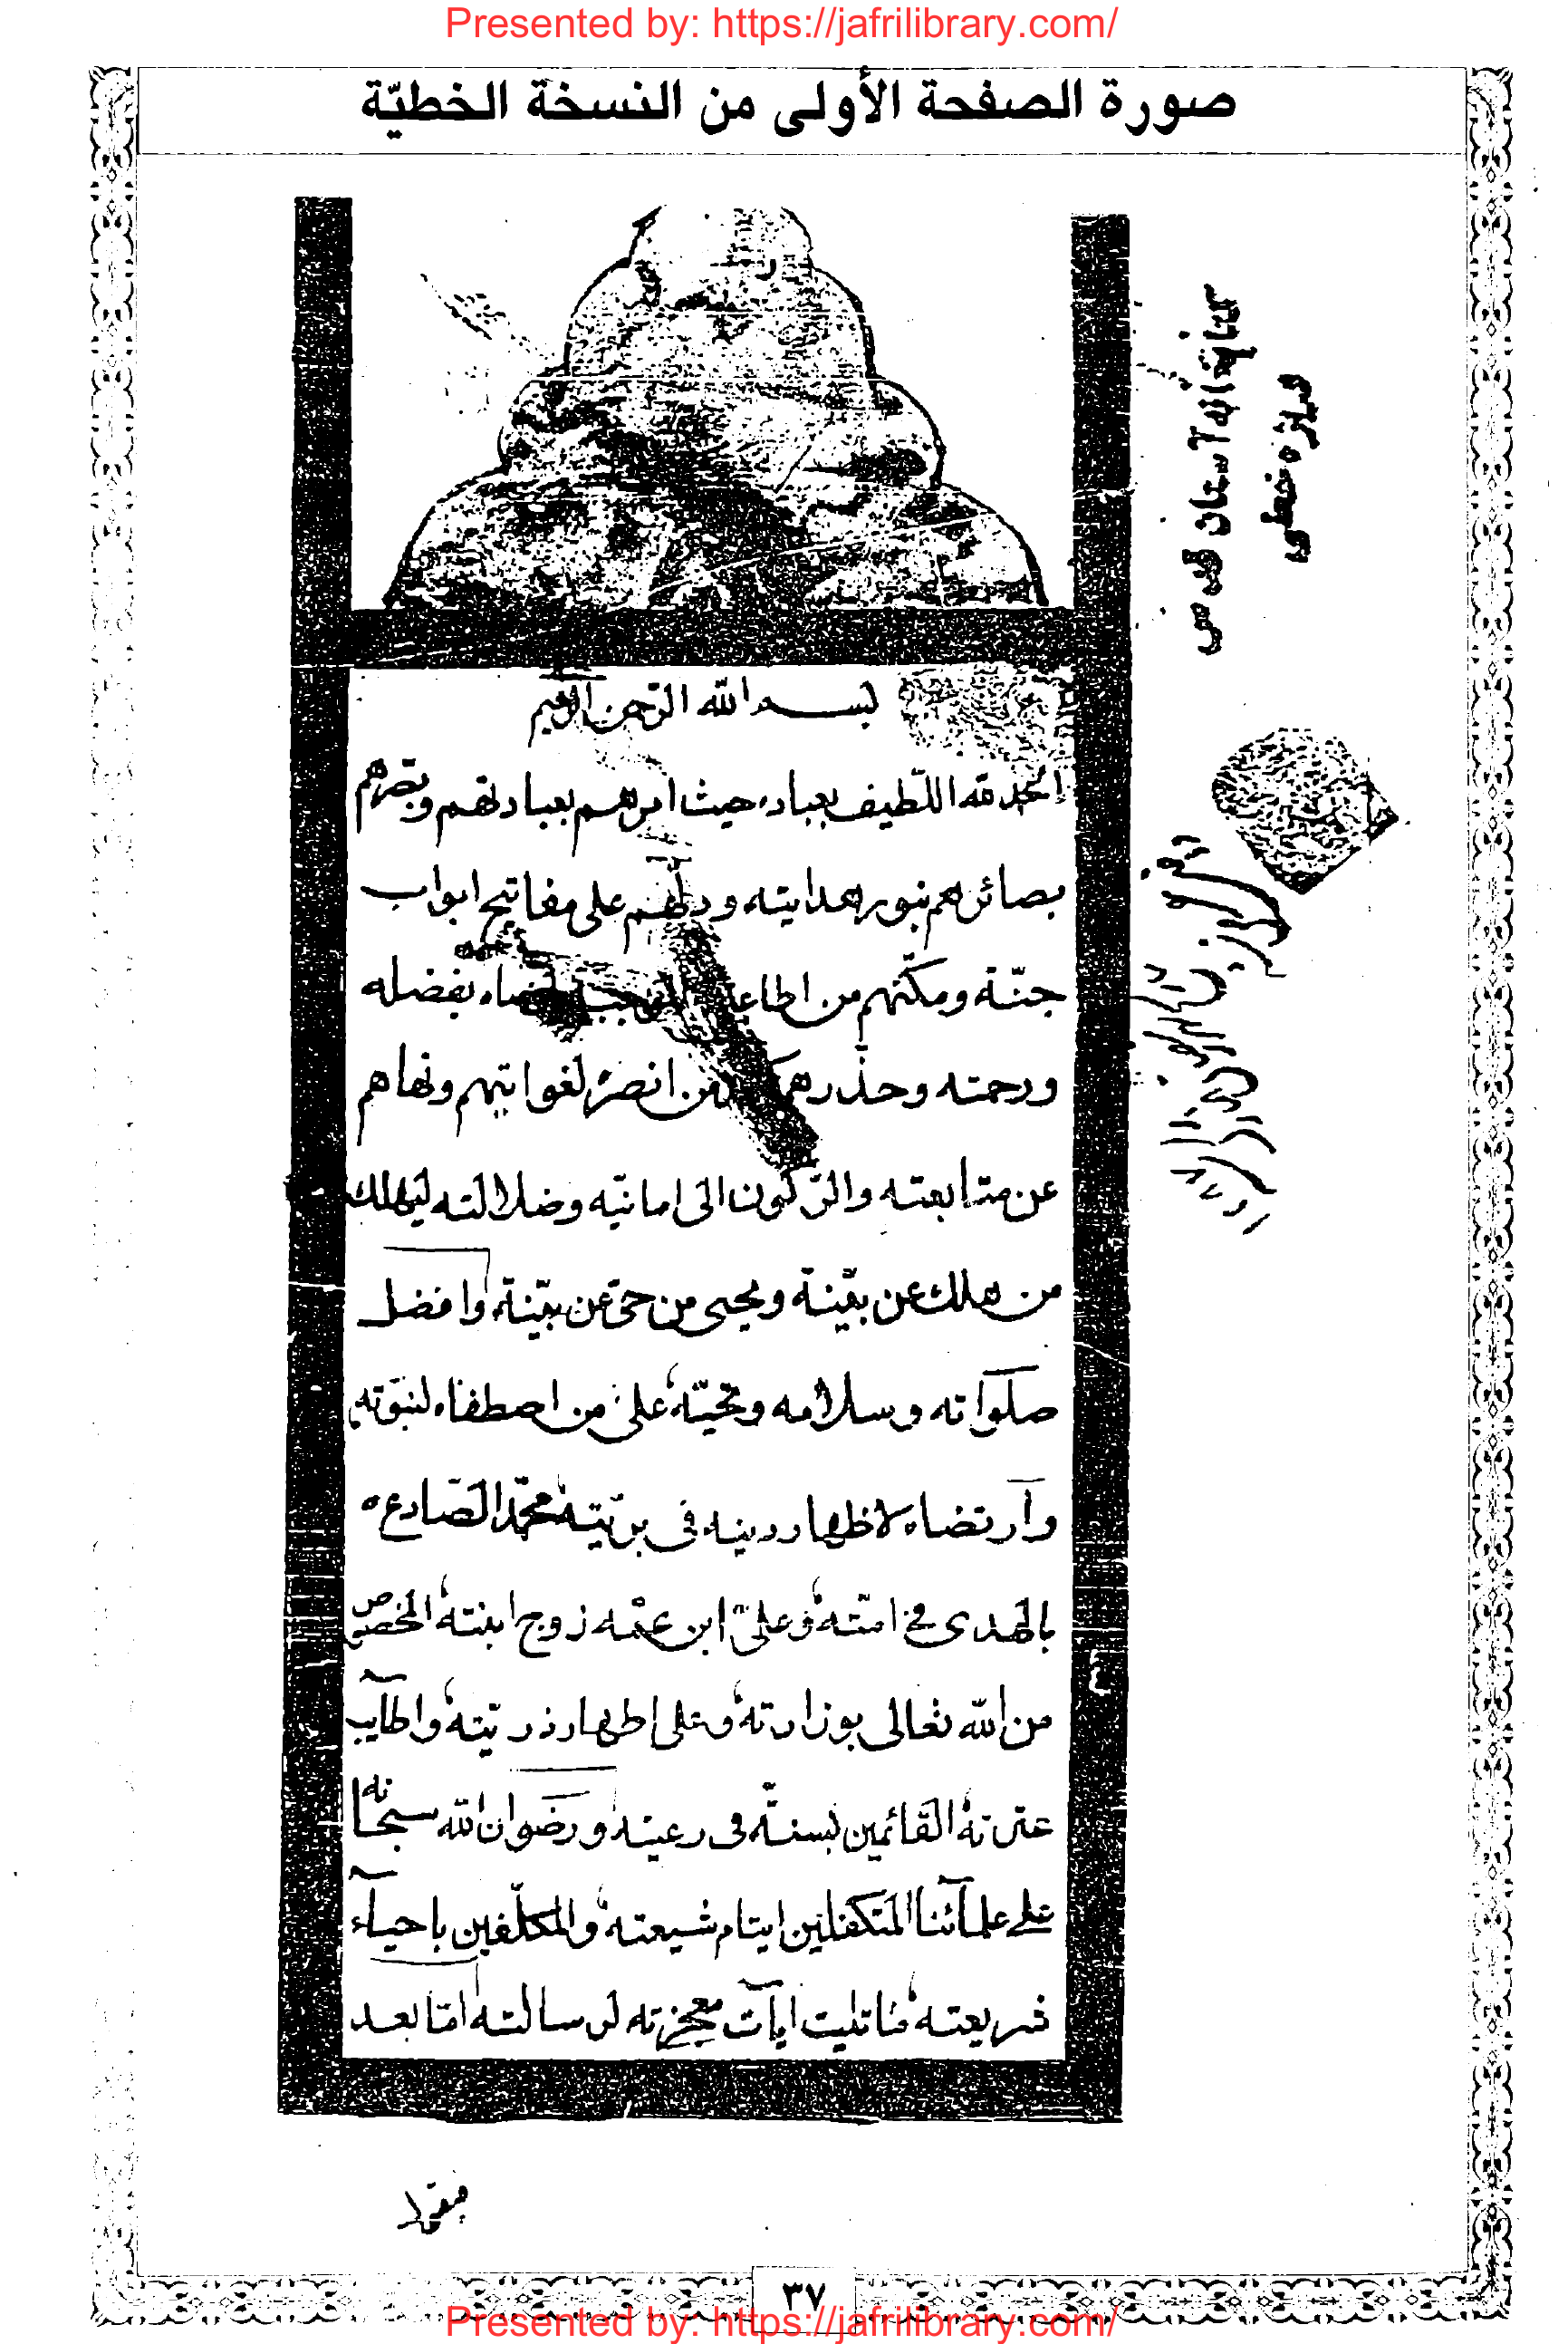 Presented by: https://jafrilibrary.com/
صورة الصفحة الأولى من النسخة الخطيّة
كتابخانه آستان قدس
بسم الله الرّحمن الرّحيم
الحمد لله اللّطيف بعباده حيث امرهم بعبادتهم وبصّرهم
بصائرهم بنور هدايته ودلّهم على مفاتيح ابواب
جنّة ومكّنهم من اطاعة بفضله
ورحمته وحذّرهم من لغوايتهم ونهاهم
عن متابعته والرّكون الى امانيّه وضلالته ليهلك
من هلك عن بيّنة ويحيى من حىّ عن بيّنة وافضل
صلواته وسلامه وتحيّته على من اصطفاه لنبوّته
وارتضاه لاظهار دينه فى بريّته محمّد الصّادع
بالهدى في امّته وعلىّ ابن عمّه زوج ابنته المخصوص
من الله تعالى بوزارته وعلى اطهار ذريّته واطآيب
عترته القائمين بسنّته فى رعيته ورضوان الله سبحانه
على علمآئنا المتكفلين ايتام شيعته والمكلّفين باحيآء
شريعته ماتليت ايآت معجزته لرسالته امّا بعد
٣٧
Presented by: https://jafrilibrary.com/